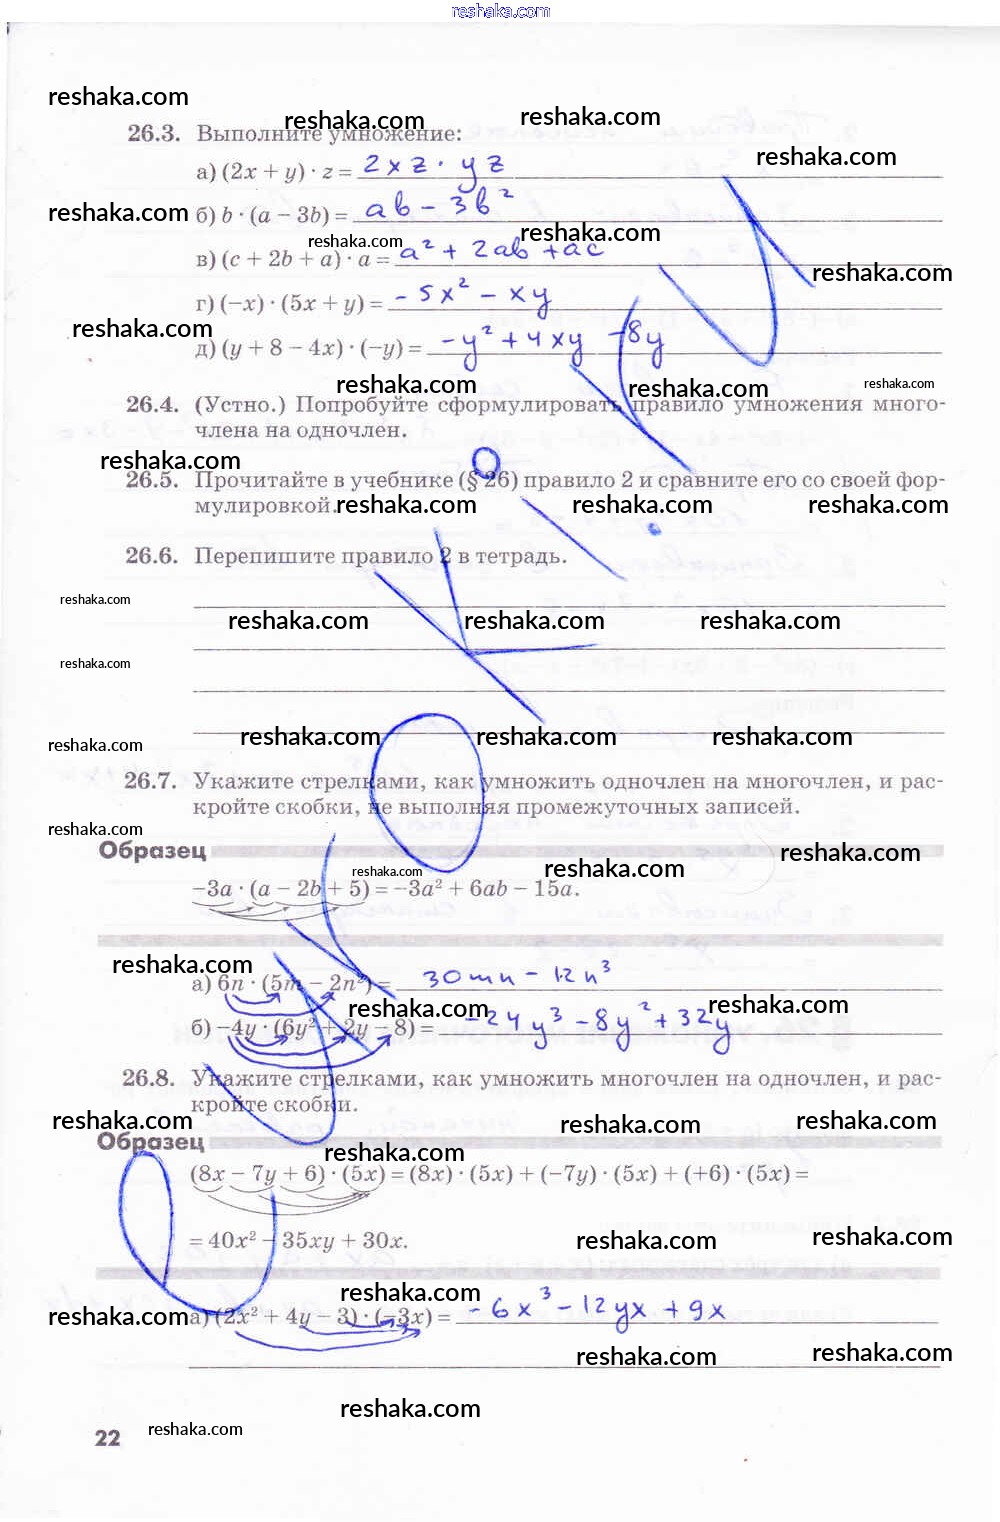 reshaka.com
reshaka.com
reshaka.com reshaka.com
26.3. Выполните умножение:
reshaka.com
а) (2x + y) · z = 2xz · yz
reshaka.com
б) b · (a − 3b) = ab − 3b²
reshaka.com reshaka.com
в) (c + 2b + a) · a = a² + 2ab + ac
reshaka.com
г) (−x) · (5x + y) = −5x² − xy
reshaka.com
д) (y + 8 − 4x) · (−y) = −y² + 4xy −8y
reshaka.com reshaka.com reshaka.com
26.4. (Устно.) Попробуйте сформулировать правило умножения много-
члена на одночлен.
reshaka.com
26.5. Прочитайте в учебнике (§ 26) правило 2 и сравните его со своей фор-
мулировкой.
reshaka.com reshaka.com reshaka.com
26.6. Перепишите правило 2 в тетрадь.
reshaka.com
reshaka.com reshaka.com reshaka.com
reshaka.com
reshaka.com reshaka.com reshaka.com reshaka.com
26.7. Укажите стрелками, как умножить одночлен на многочлен, и рас-
кройте скобки, не выполняя промежуточных записей.
reshaka.com
Образец
reshaka.com reshaka.com reshaka.com
−3a · (a − 2b + 5) = −3a² + 6ab − 15a.
reshaka.com
а) 6n · (5m − 2n²) = 30mn − 12n³
reshaka.com reshaka.com
б) −4y · (6y² + 2y − 8) = −24y³ − 8y² + 32y
26.8. Укажите стрелками, как умножить многочлен на одночлен, и рас-
кройте скобки.
reshaka.com reshaka.com reshaka.com
Образец
reshaka.com
(8x − 7y + 6) · (5x) = (8x) · (5x) + (−7y) · (5x) + (+6) · (5x) =
= 40x² − 35xy + 30x.
reshaka.com reshaka.com
reshaka.com
reshaka.com
а) (2x² + 4y − 3) · (−3x) = −6x³ − 12yx + 9x
reshaka.com reshaka.com
reshaka.com
22
reshaka.com